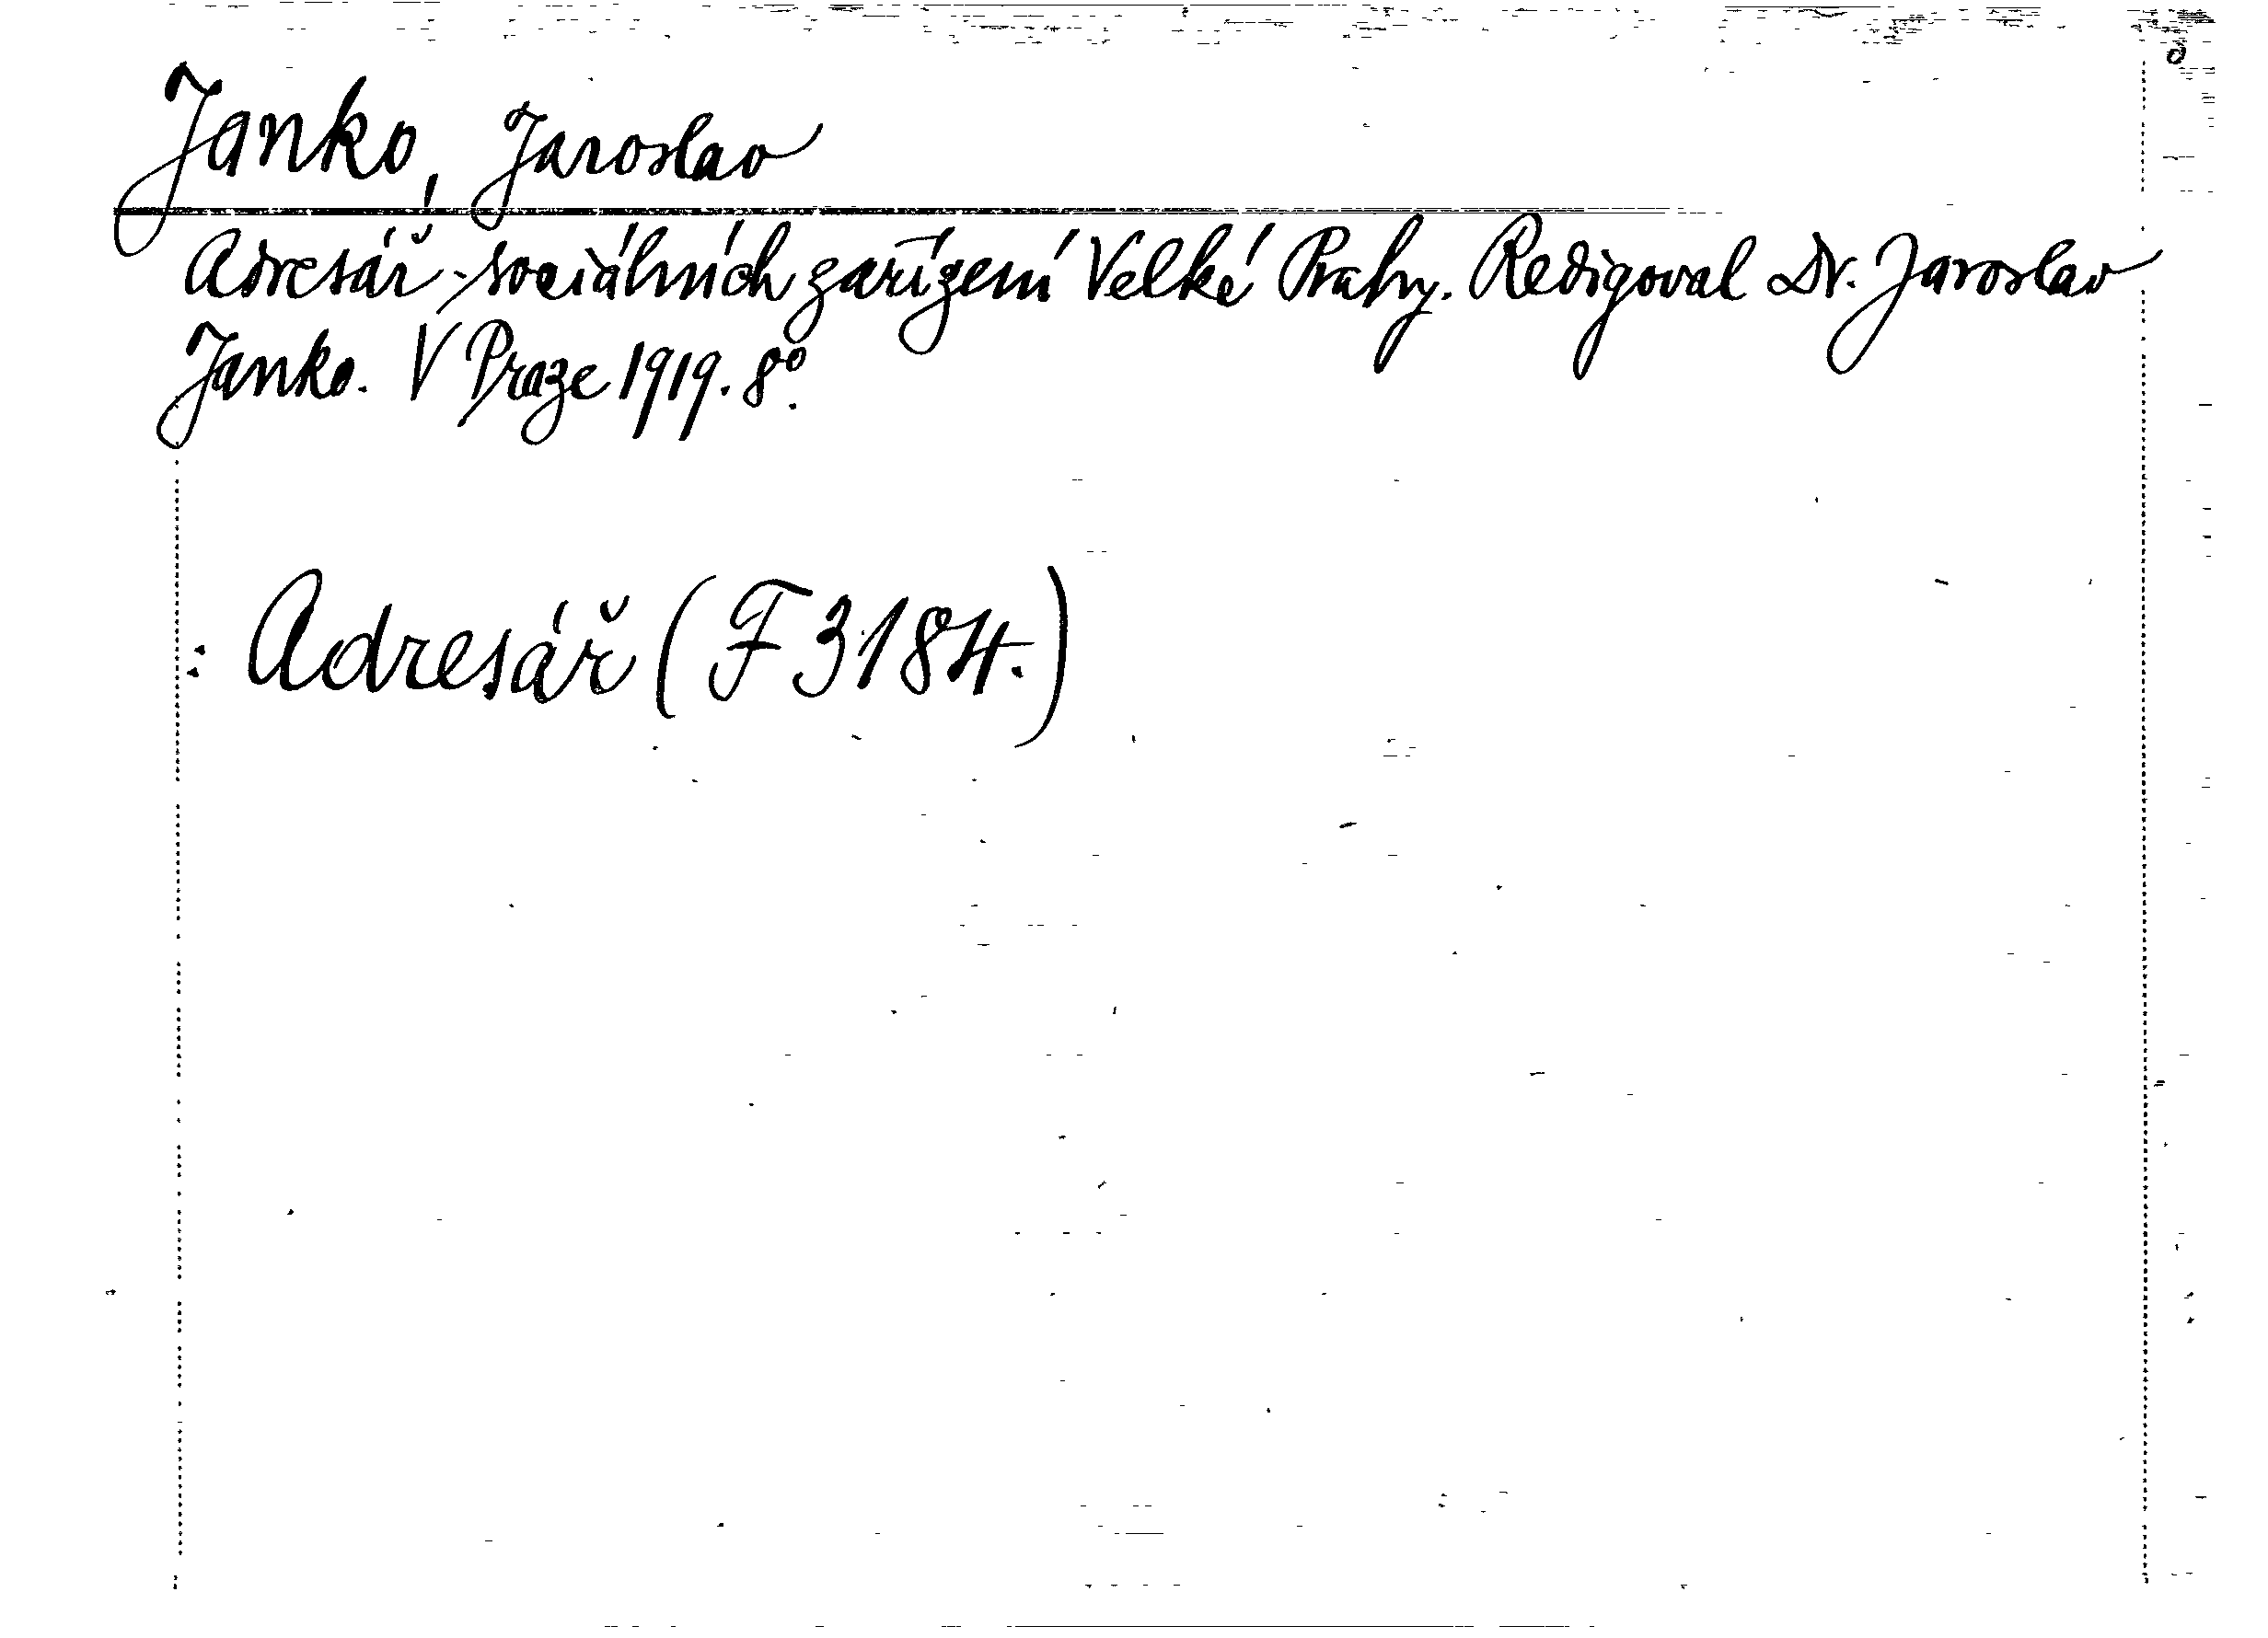 Janko, Jaroslav
Adresář sociálních zařízení Velké Prahy. Redigoval Dr. Jaroslav
Janko. V Praze 1919. 8°.
: Adresář (F 3184.)